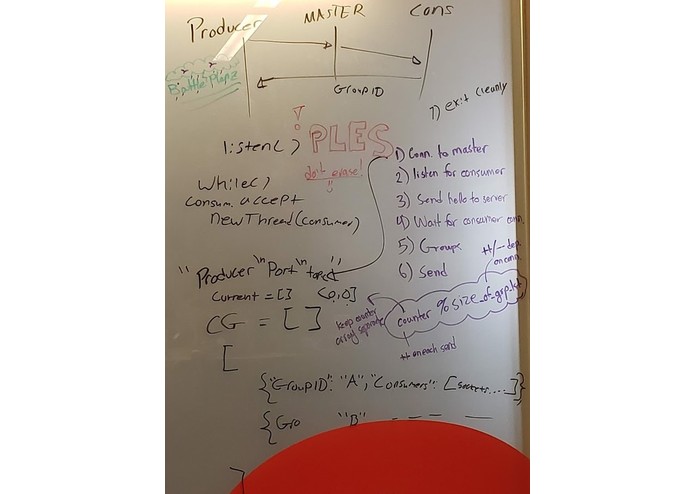 Producer MASTER Cons
Battle Plapz
GroupID
7) exit cleanly
PLES
don't erase!
listen()
while()
consum. accept
newThread(consumer)
1) Conn. to master
2) listen for consumer
3) Send hello to server
4) Wait for consumer conn.
5) Groups
6) Send
++/-- dep.
on conn.
"Producer\nPort\n
current = []
CG = [ ]
keep counter
array separate
counter % size_of_grp_lst
++ on each send
[
{"GroupID": "A", "Consumers": [sockets....]}
{Gro "B" - - - -
]